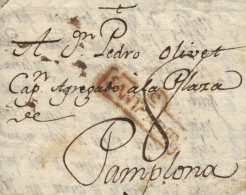 A Dn Pedro Olivet
Capn Agregado a la Plaza
de
8
Pamplona